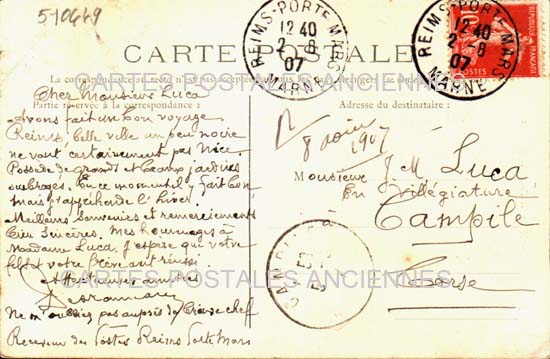 510449
REIMS-PORTE MARS
12 40
2-8
07
MARNE
REIMS-PORTE MARS
12 40
2-8
07
MARNE
POSTES
CARTE POSTALE
La correspondance au recto n'est pas acceptée
CARTES POSTALES ANCIENNES
Partie réservée à la correspondance :
Adresse du destinataire :
Cher Monsieur Luca
Avons fait un bon voyage.
Reims, belle ville un peu noire
ne vaut certainement pas Nice.
Possède de grands et beaux jardins
ombragés. En ce moment il y fait bon
mais j'appréhende l'hiver.
Meilleurs souvenirs et remerciements
bien sincères. Mes hommages à
Madame Luca. J'espère que votre
fils et votre frère ont réussi.
R
8 août 1907
Monsieur J. M. Luca
En Villégiature
Campile
Corse
CARTES POSTALES ANCIENNES
Ne m'oubliez pas auprès de
chef
Receveur des Postes Reims Porte Mars